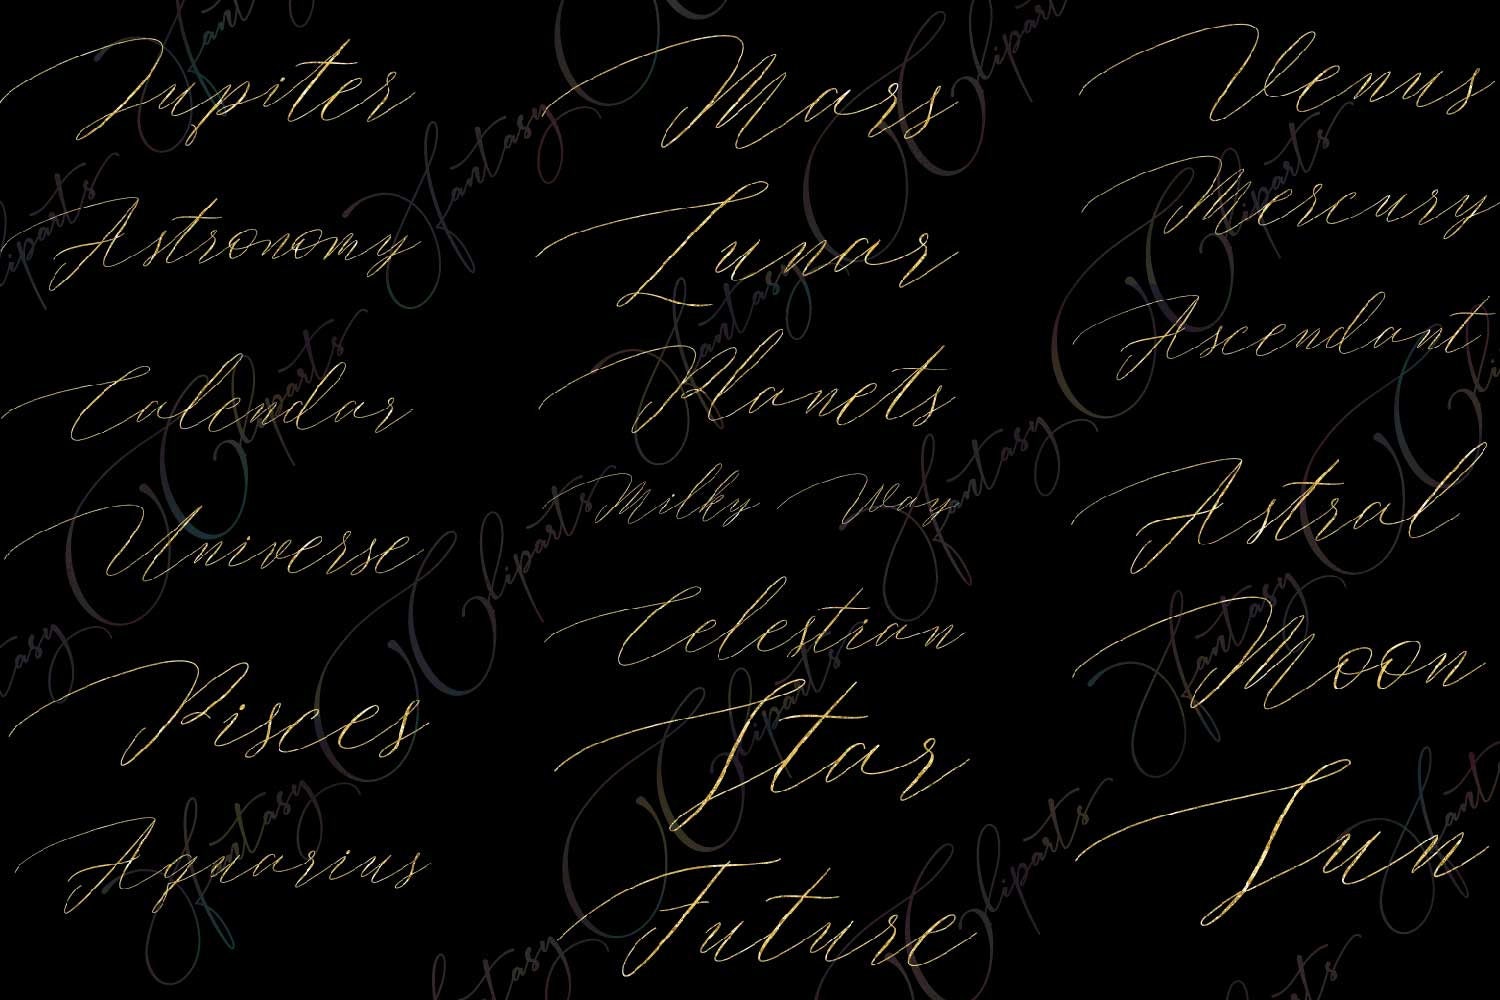 Jupiter
Astronomy
Calendar
Universe
Pisces
Aquarius
Mars
Lunar
Planets
Milky Way
Celestian
Star
Future
Venus
Mercury
Ascendant
Astral
Moon
Sun
Fantasy Cliparts